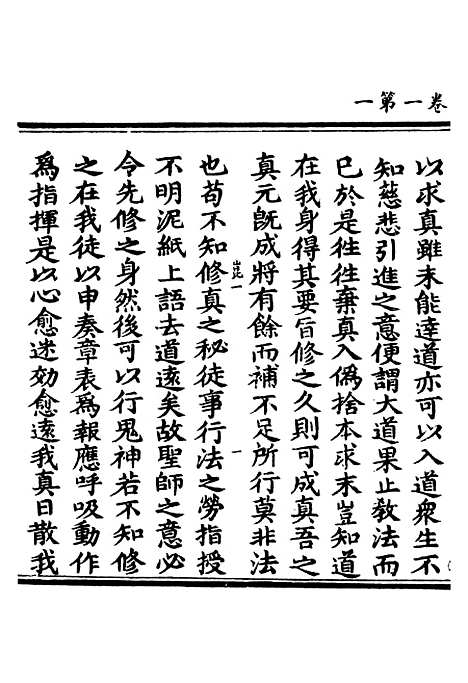 卷一第一
以求真雖未能達道亦可以入道衆生不
知慈悲引進之意便謂大道果止教法而
已於是徃徃棄真入僞捨本求末豈知道
在我身得其要旨修之久則可成真吾之
真元旣成將有餘而補不足所行莫非法
也苟不知修真之秘徒事行法之勞指授
不明泥紙上語去道遠矣故聖師之意必
令先修之身然後可以行鬼神若不知修
之在我徒以申奏章表爲報應呼吸動作
爲指揮是以心愈迷効愈遠我真日散我